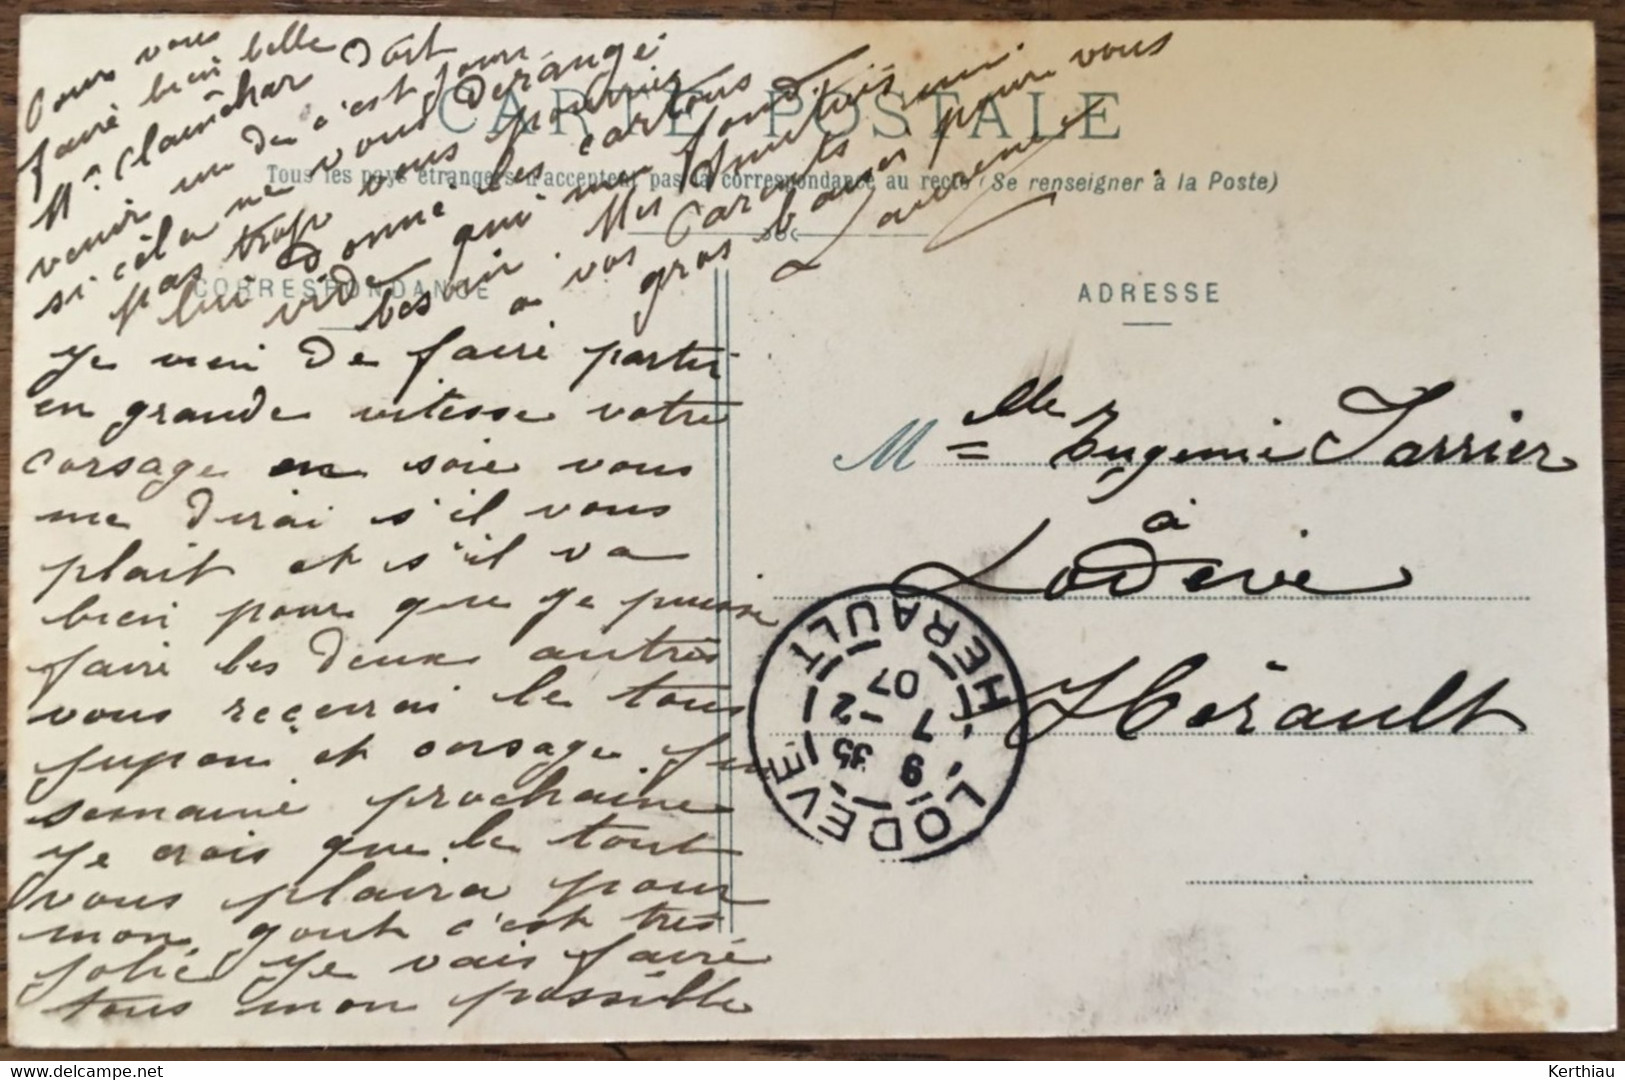 CARTE POSTALE
Tous les pays étrangers n'acceptent pas la correspondance au recto (Se renseigner à la Poste)
CORRESPONDANCE
Je vien de faire partir
en grande vitesse votre
corsage en soie vous
me dirai s'il vous
plait et s'il va
bien pour que je puisse
faire les deux autres
vous recevrai le tous
jupon et corsage fin
semaine prochaine
Je crois que le tout
vous plaira pour
mon gout c'est très
jolie Je vais faire
tous mon possible
Pour vous
faire bien belle
Mr Clamchar doit
venir un de c'est jour
si cela ne vous dérange
pas trop vous pourriez
lui donne les cartons
vide qui me font
besoin. Mes Amitiés
a vos Parents
gros baiser pour vous
Laurence
ADRESSE
Mlle Eugenie Sarrier
à
Lodeve
Hérault
LODEVE HERAULT
19 35
7 -2
07
Kerthiau